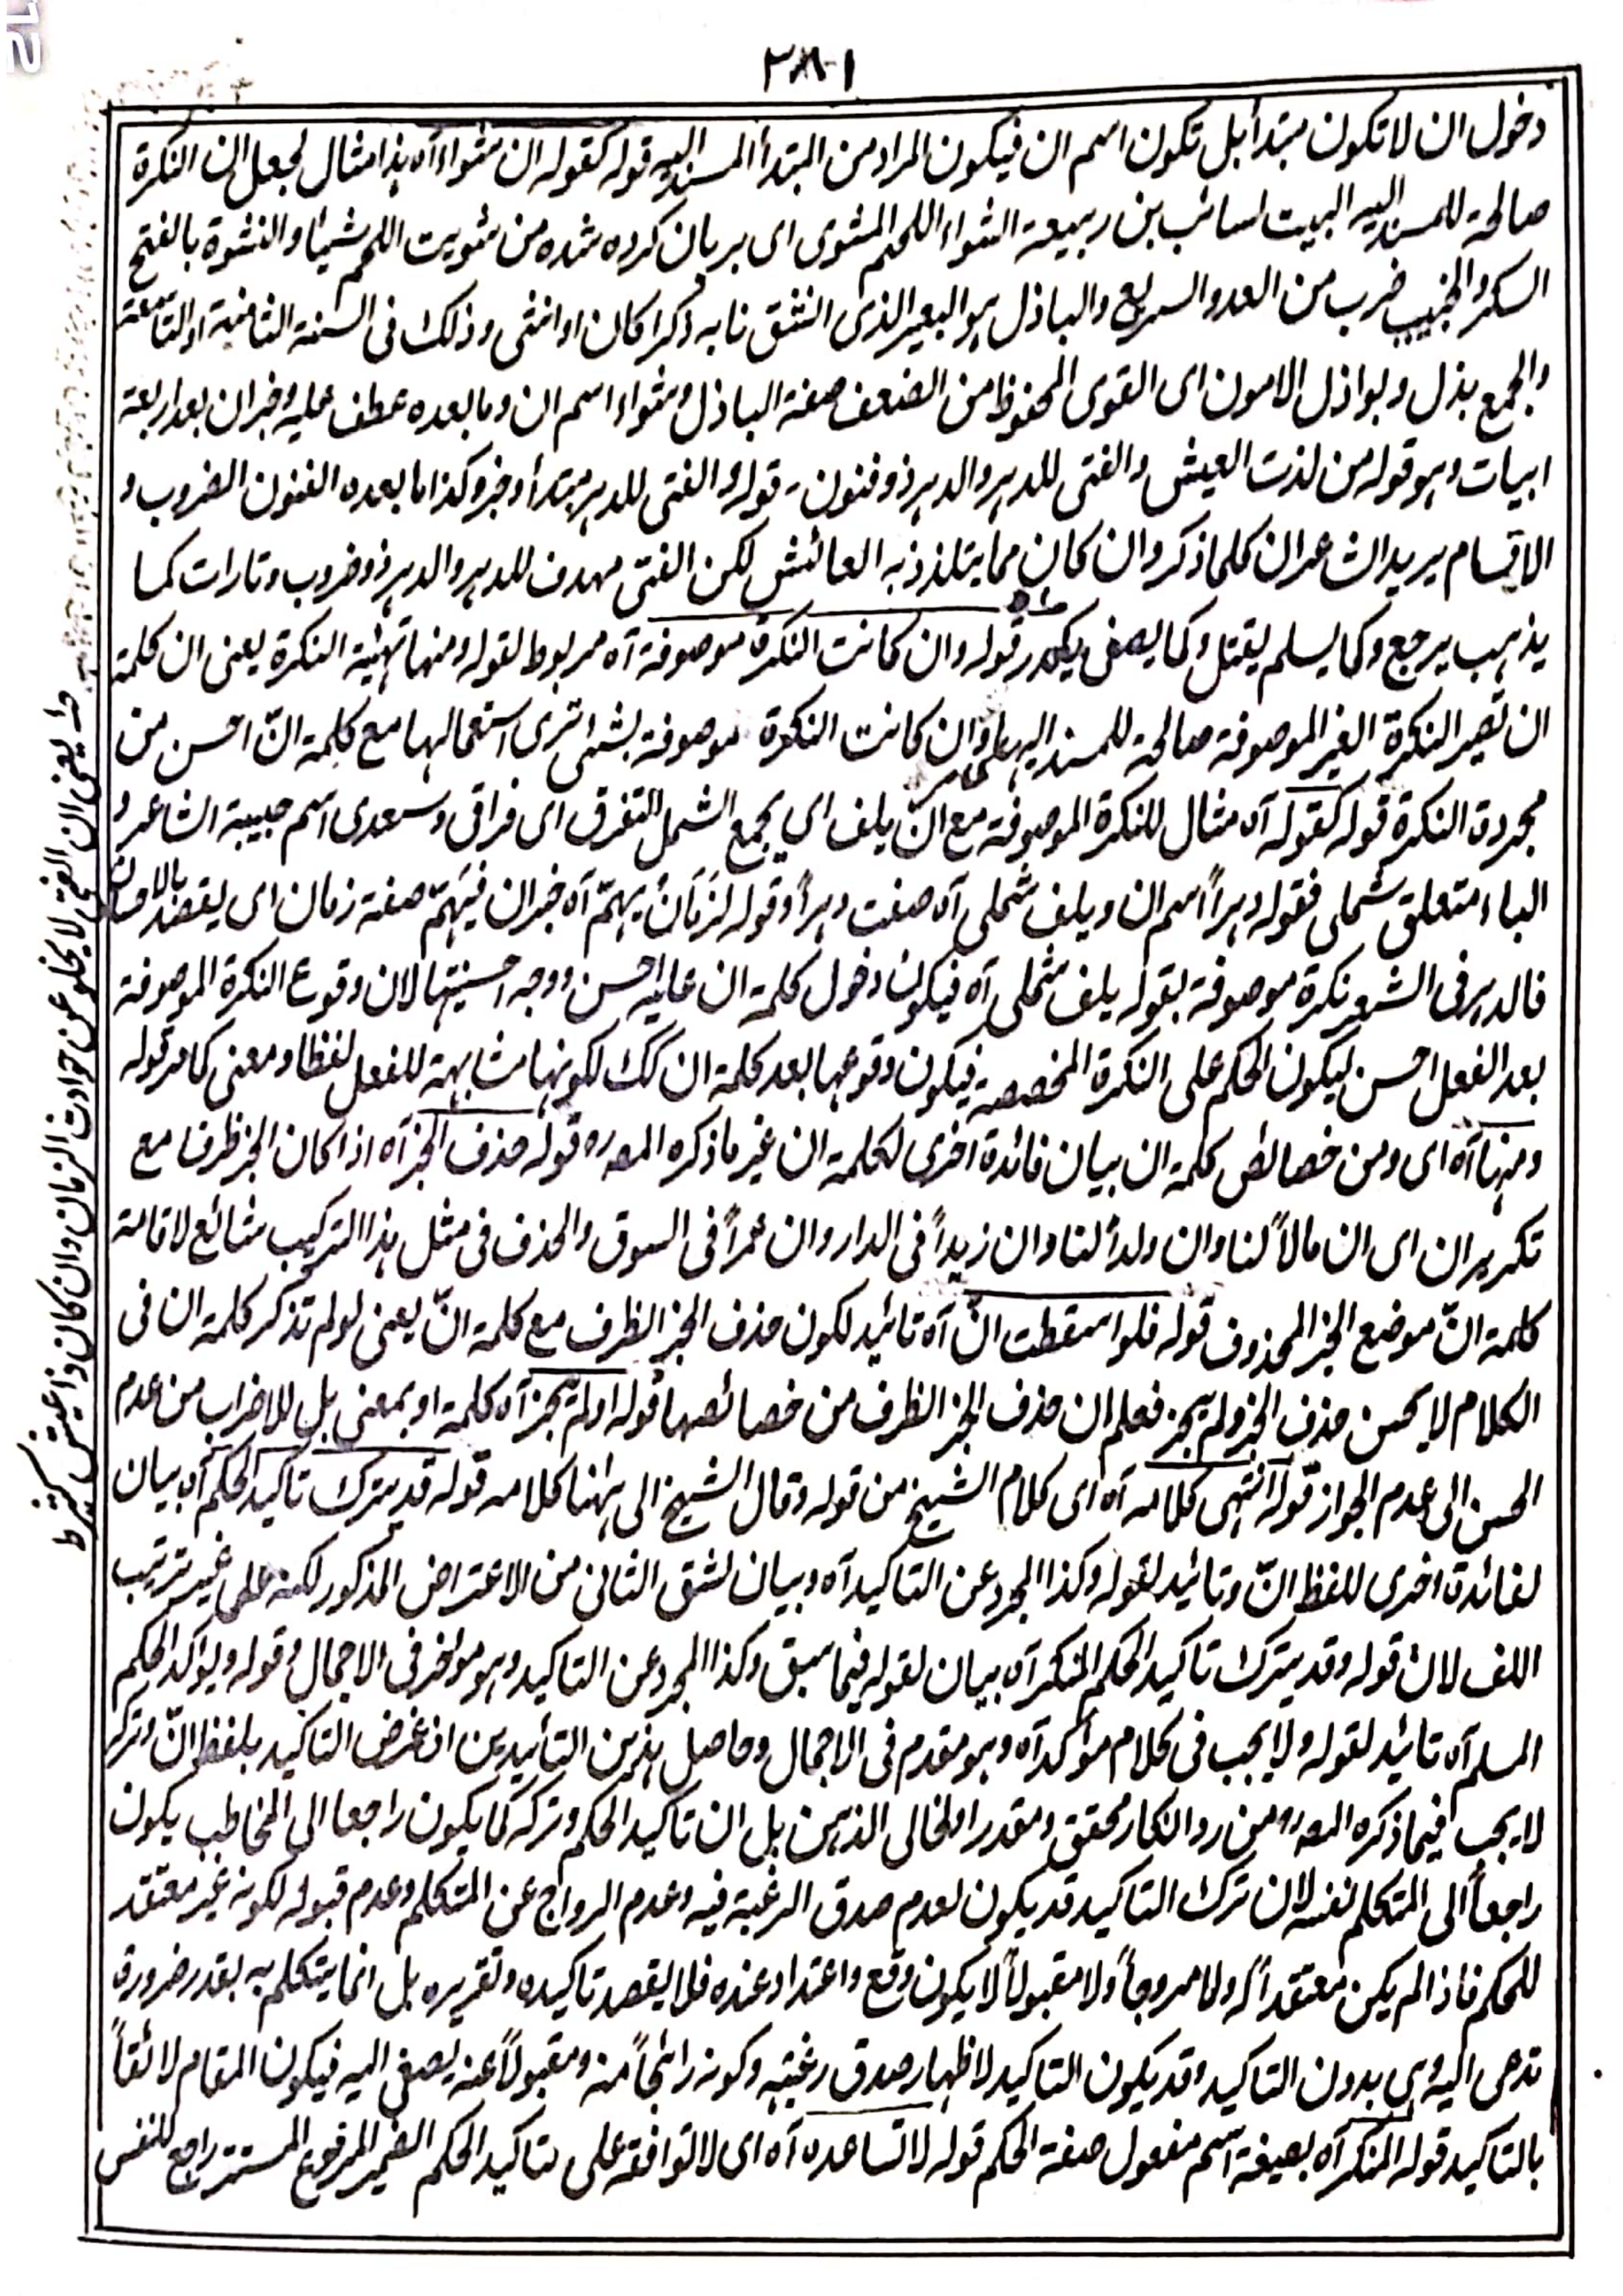 ٣٨١
دخول ان لا تكون مبتدأ بل تكون اسم ان فيكون المراد من المبتدأ المسند اليه قوله كقوله ان شواءآه هذا مثال لجعل ان النكرة
صالحة للمسند اليه البيت لسائب بن ربيعة الشواء اللحم المشوى اى بريان كرده شده من شويت اللحم شيئا والنشوة بالفتح
السكر والخبيب ضرب من العدو السريع والباذل هو البعير الذى انشق نابه ذكرا كان او انثى وذلك فى السنة الثامنية او التاسعة
والجمع بذل وبواذل الامون اى القوى المحفوظ من الضعف صفة الباذل وشواء اسم ان وما بعده عطف عليه وخبران بعد اربعة
ابيات وهو قوله من لذت العيش والفتى للدهر والدهر ذو فنون۔ قوله والفتى للدهر مبتدأ وخبر وكذا ما بعده الفنون الضروب و
الاقسام يريد الشاعر ان كلما ذكر وان كان مما يتلذذ به العائش لكن الفتى مهدف للدهر والدهر ذو ضروب وتارات كما
يذهب يرجع وكما يسلم يقتل وكما يصفى يكدر قوله وان كانت النكرة موصوفة آه مربوط لقوله ومنها تهيئة النكرة يعنى ان كلمة
ان تصير النكرة الغير الموصوفة صالحة للمسند اليها وان كانت النكرة موصوفة بشئ ترى استعمالها مع كلمة انّ احسن من
مجردة النكرة قوله كقوله آه مثال للنكرة الموصوفة مع انّ يلف اى يجمع الشمل التفرق اى فراقى وسعدى اسم حبيبة الشاعر و
الباء متعلق شملى فقوله دهراً اسم ان ويلف شملى آه صفت دهراً وقوله لزمان يهمّ آه خبر ان فيهمّ صفة زمان اى يقصد بالاحسان
فالدهر فى الشعر نكرة موصوفة بقوله يلف شملى آه فيكون دخول كلمة ان عليه احسن ووجه احسنيتها لان وقوع النكرة الموصوفة
بعد الفعل احسن ليكون الحكم على النكرة المخصصة فيكون وقوعها بعد كلمة ان كك لكونها مشابهة للفعل لفظا ومعنى كامر قوله
ومنها آه اى ومن خصائص كلمة ان بيان فائدة اخرى لكلمة ان غير ما ذكره المصره قوله حذف الخبر آه اذا كان الخبر ظرفا مع
تكرير ان اى ان مالاً لنا وان ولداً لنا وان زيداً فى الدار وان عمراً فى السوق والحذف فى مثل هذا التركيب شائع لاقامة
كلمة انّ موضع الخبر المحذوف قوله فلو اسقطت انّ آه تائيد لكون حذف الخبر الظرف مع كلمة انّ يعنى لو لم تذكر كلمة ان فى
الكلام لا يحسن حذف الخبر ولم يجز فعلم ان حذف الخبر الظرف من خصائصها قوله اولم يجز آه كلمة او بمعنى بل للاضراب من عدم
الحسن الى عدم الجواز قوله انتهى كلامه آه اى كلام الشيخ من قوله وقال الشيخ الى ههنا كلامه قوله قد يترك تاكيد الحكم آه بيان
لفائدة اخرى للفظ انّ وتائيد لقوله وكذا المجرد عن التاكيد آه وبيان لشق الثانى من الاعتراض المذكور لكنه على غير ترتيب
اللف لان قوله وقد يترك تاكيد الحكم المنكر آه بيان لقوله فيما سبق وكذا المجرد عن التاكيد وهو مؤخر فى الاجمال وقوله ويؤكد الحكم
المسلم آه تائيد لقوله ولا يجب فى كلام مؤكد آه وهو مقدم فى الاجمال وحاصل هذين التائيدين ان غرض التاكيد بلفظ انّ وتركه
لا يجب فيما ذكره المصره من رد انكار محقق ومقدر او لخالى الذهن بل ان تاكيد الحكم وتركه كما يكون راجعا الى المخاطب يكون
راجعاً الى المتكلم نفسه لان ترك التاكيد قد يكون لعدم صدق الرغبة فيه وعدم الرواج عن المتكلم وعدم قبوله لكونه غير معتقد
للحكم فاذا لم يكن معتقداً له ولا مروجاً ولا مقبولاً لا يكون وقع واعتداد عنده فلا يقصد تاكيده وتقريره بل انما يتكلم به بقدر ضرورة
تدعى اليه وهى بدون التاكيد وقد يكون التاكيد لاظهار صدق رغبته وكونه رائجاً منه ومقبولاً عنه يصغى اليه فيكون المقام لائقاً
بالتاكيد قوله المنكر آه بصيغة اسم مفعول صفة الحكم قوله لا تساعده آه اى لا توافقه على تاكيد الحكم الضمير المرفوع المستتر راجع للنفس
يعنى ان الفتى لا يخلو عن حوادث الزمان وان كان ذا عيش كثير